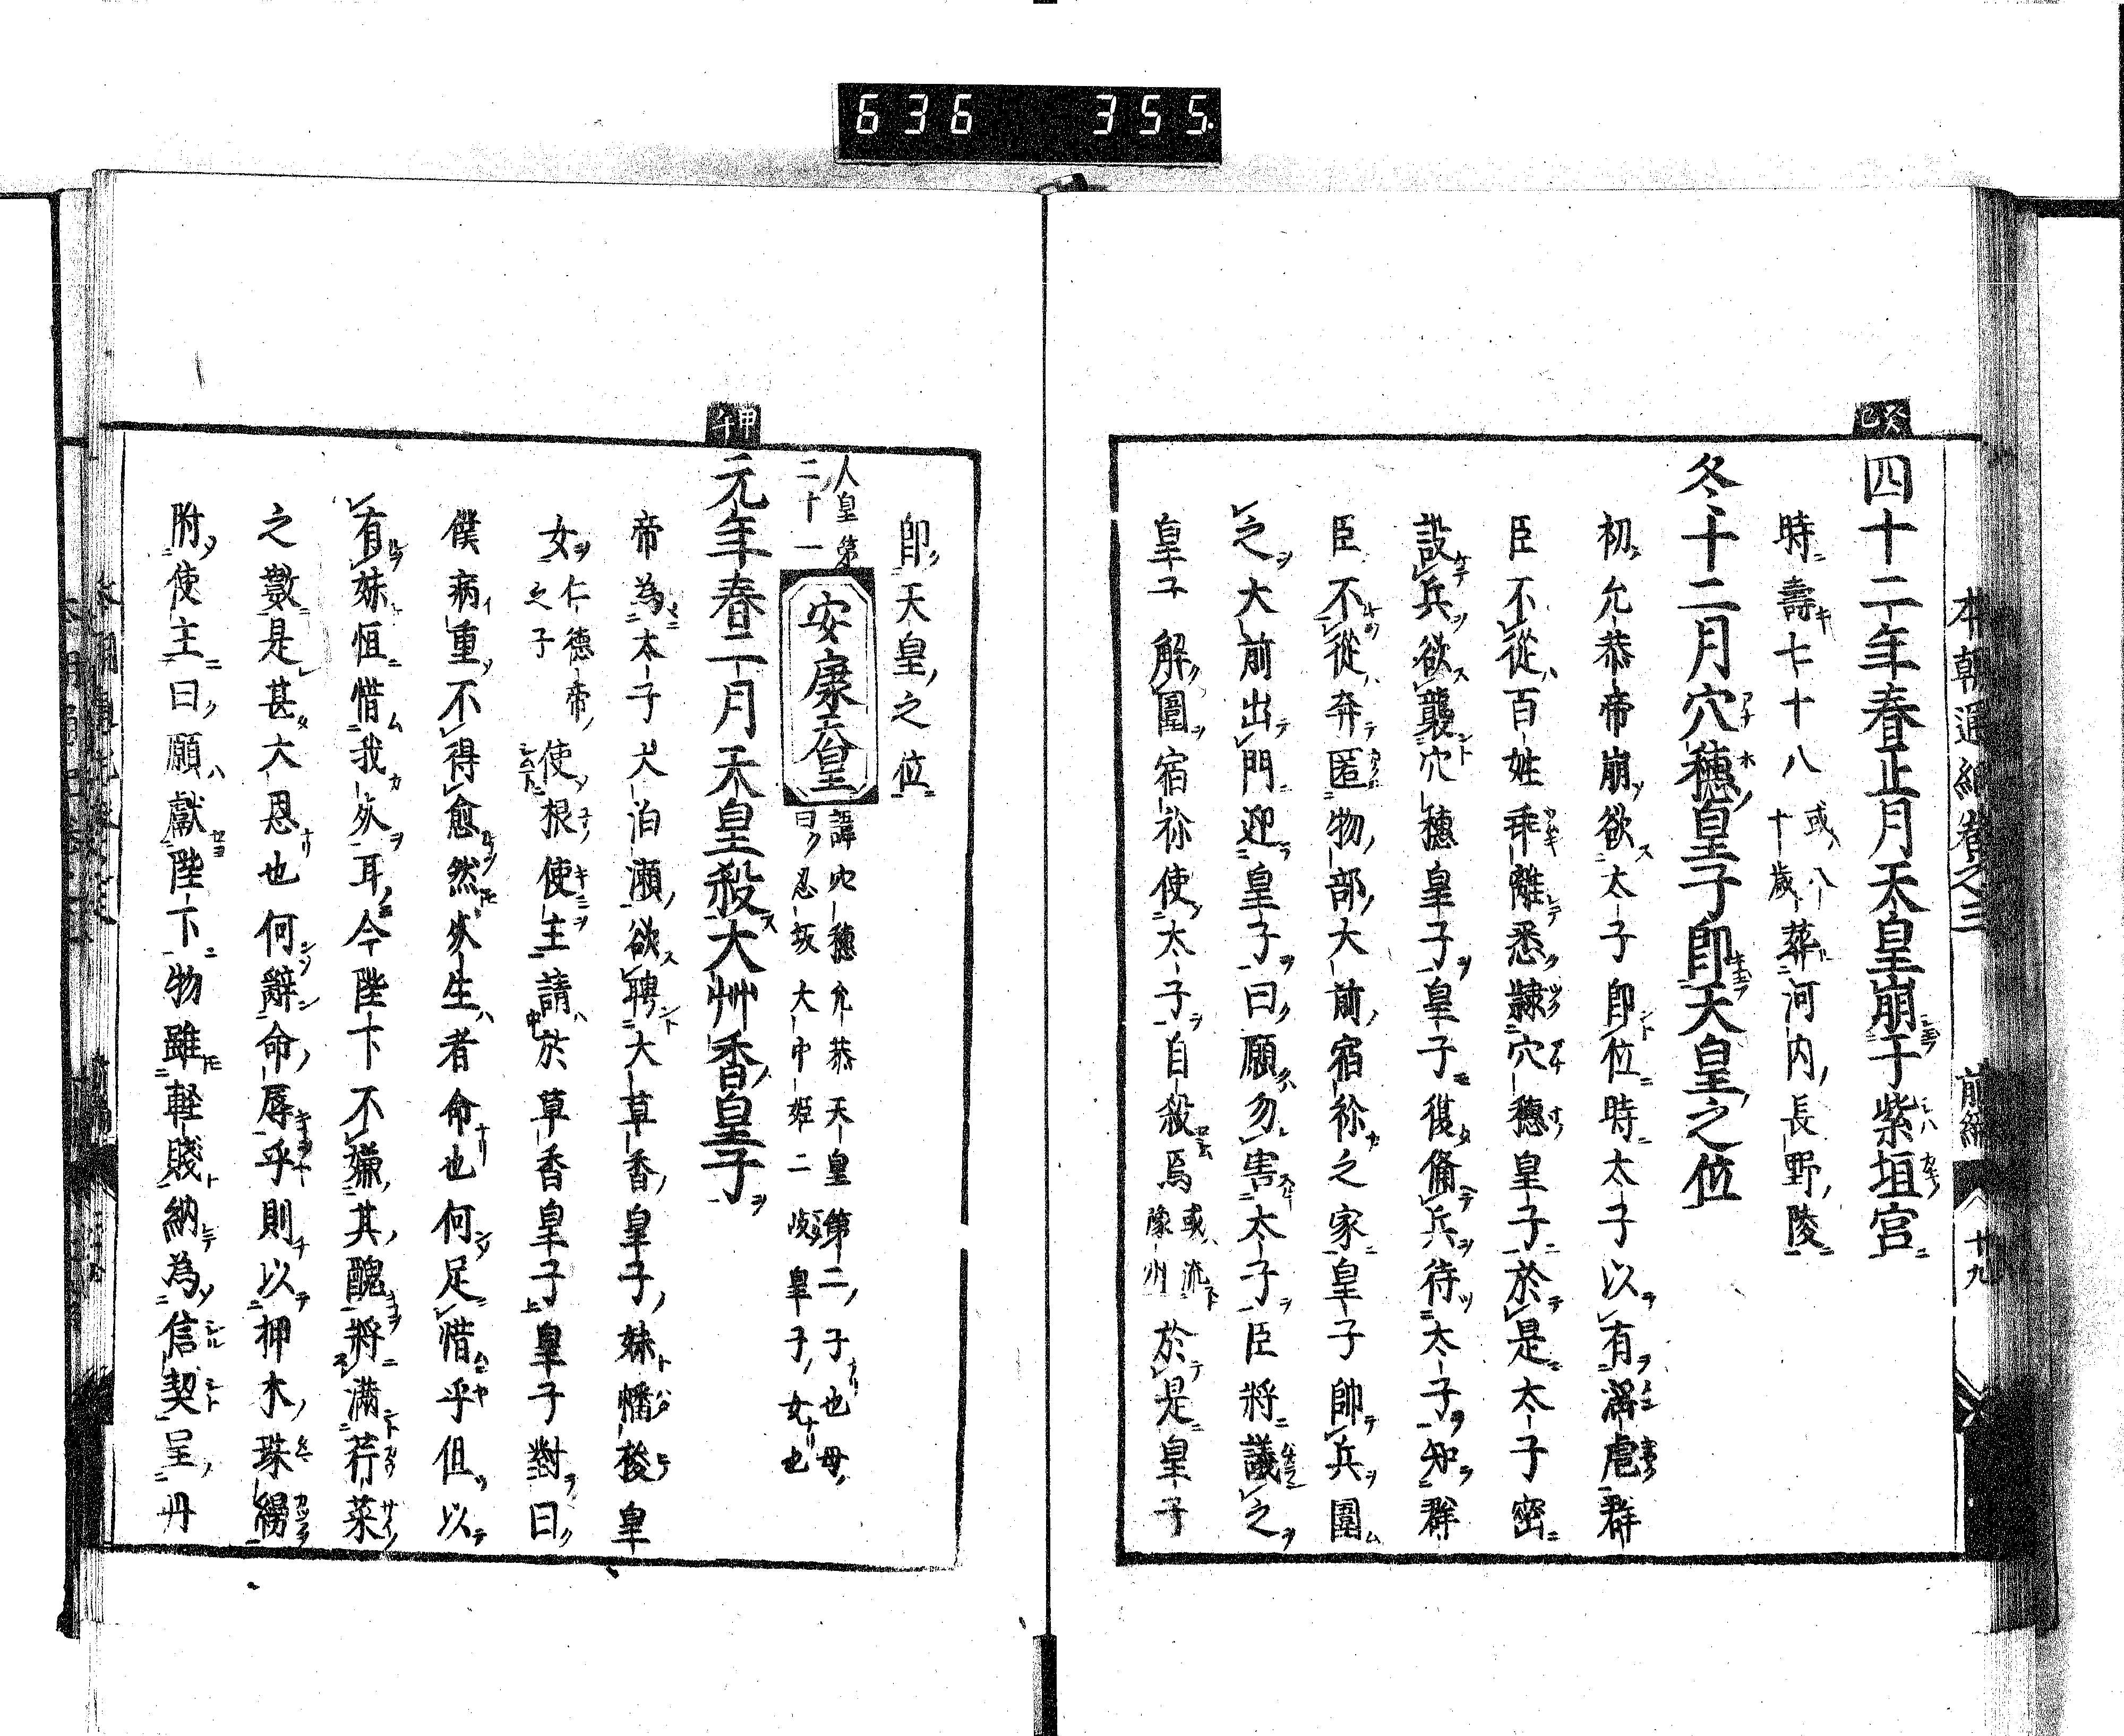 636 355
本朝通紀卷之三 前編 十九
癸巳
四十二年春正月天皇崩于紫垣宮
時壽七十八或八十歲葬河内長野陵
冬十二月穴穗皇子即天皇之位
初允恭帝崩欲太子即位時太子以有淫虐群
臣不從百姓乖離悉隷穴穗皇子於是太子密
設兵欲襲穴穗皇子皇子復備兵待太子知群
臣不從奔匿物部大前宿祢之家皇子帥兵圍
之大前出門迎皇子曰願勿害太子臣將議之
皇子解圍宿祢使太子自殺焉或流豫州於是皇子
即天皇之位
人皇第二十一
安康天皇
諱穴穗允恭天皇第二子也母
曰忍坂大中姫二岐皇子女也
甲午
元年春二月天皇殺大艸香皇子
帝為太子大泊瀬欲聘大草香皇子妹幡梭皇
女仁德帝之子使根使主請於草香皇子皇子對曰
僕病重不得愈然死生者命也何足惜乎但以
有妹恒惜我死耳今陛下不嫌其醜將滿荇菜
之數是甚大恩也何辭命辱乎則以押木珠縵
附使主曰願獻陛下物雖軽賤納為信契呈丹